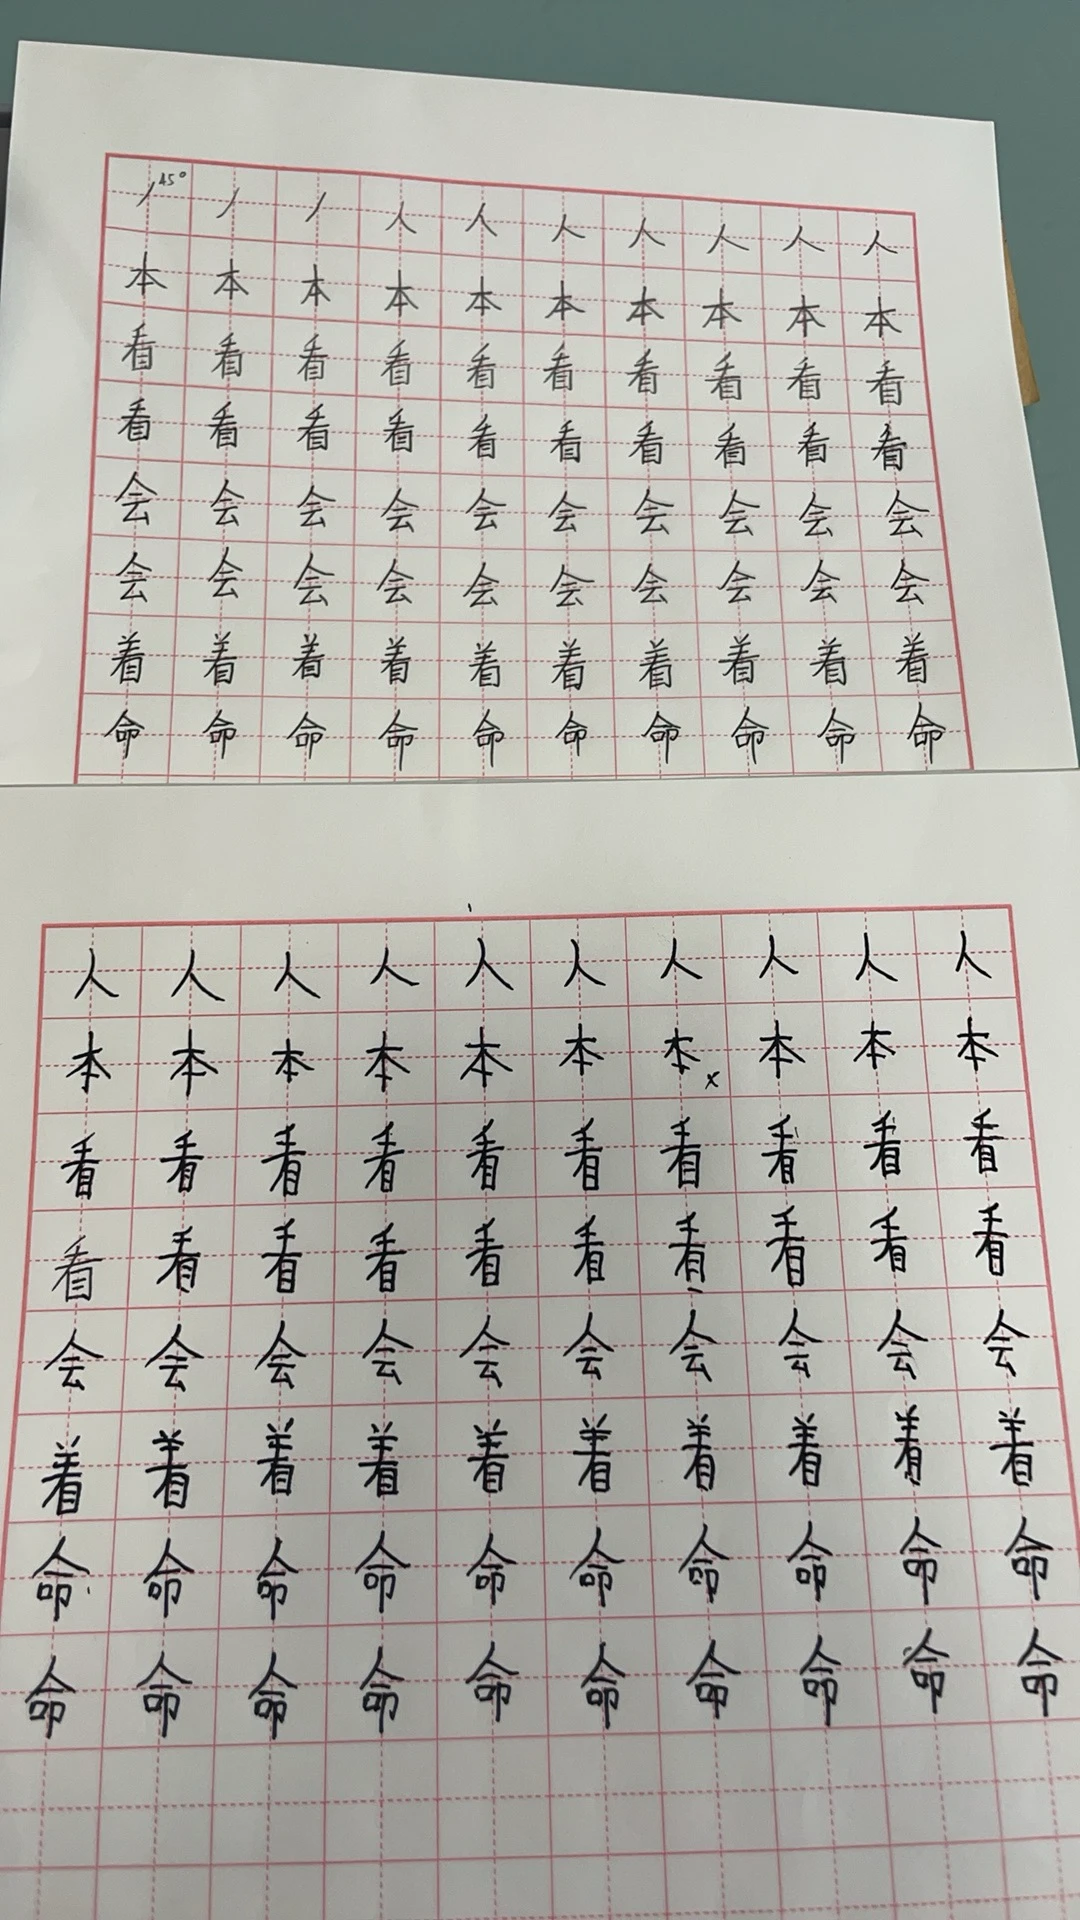 丿 45° 丿 丿 人 人 人 人 人 人 人
本 本 本 本 本 本 本 本 本 本
看 看 看 看 看 看 看 看 看 看
看 看 看 看 看 看 看 看 看 看
会 会 会 会 会 会 会 会 会 会
会 会 会 会 会 会 会 会 会 会
着 着 着 着 着 着 着 着 着 着
命 命 命 命 命 命 命 命 命 命
人 人 人 人 人 人 人 人 人 人
本 本 本 本 本 本 本 x 本 本 本
看 看 看 看 看 看 看 看 看 看
看 看 看 看 看 看 看 看 看 看
会 会 会 会 会 会 会 会 会 会
着 着 着 着 着 着 着 着 着 着
命 命 命 命 命 命 命 命 命 命
命 命 命 命 命 命 命 命 命 命